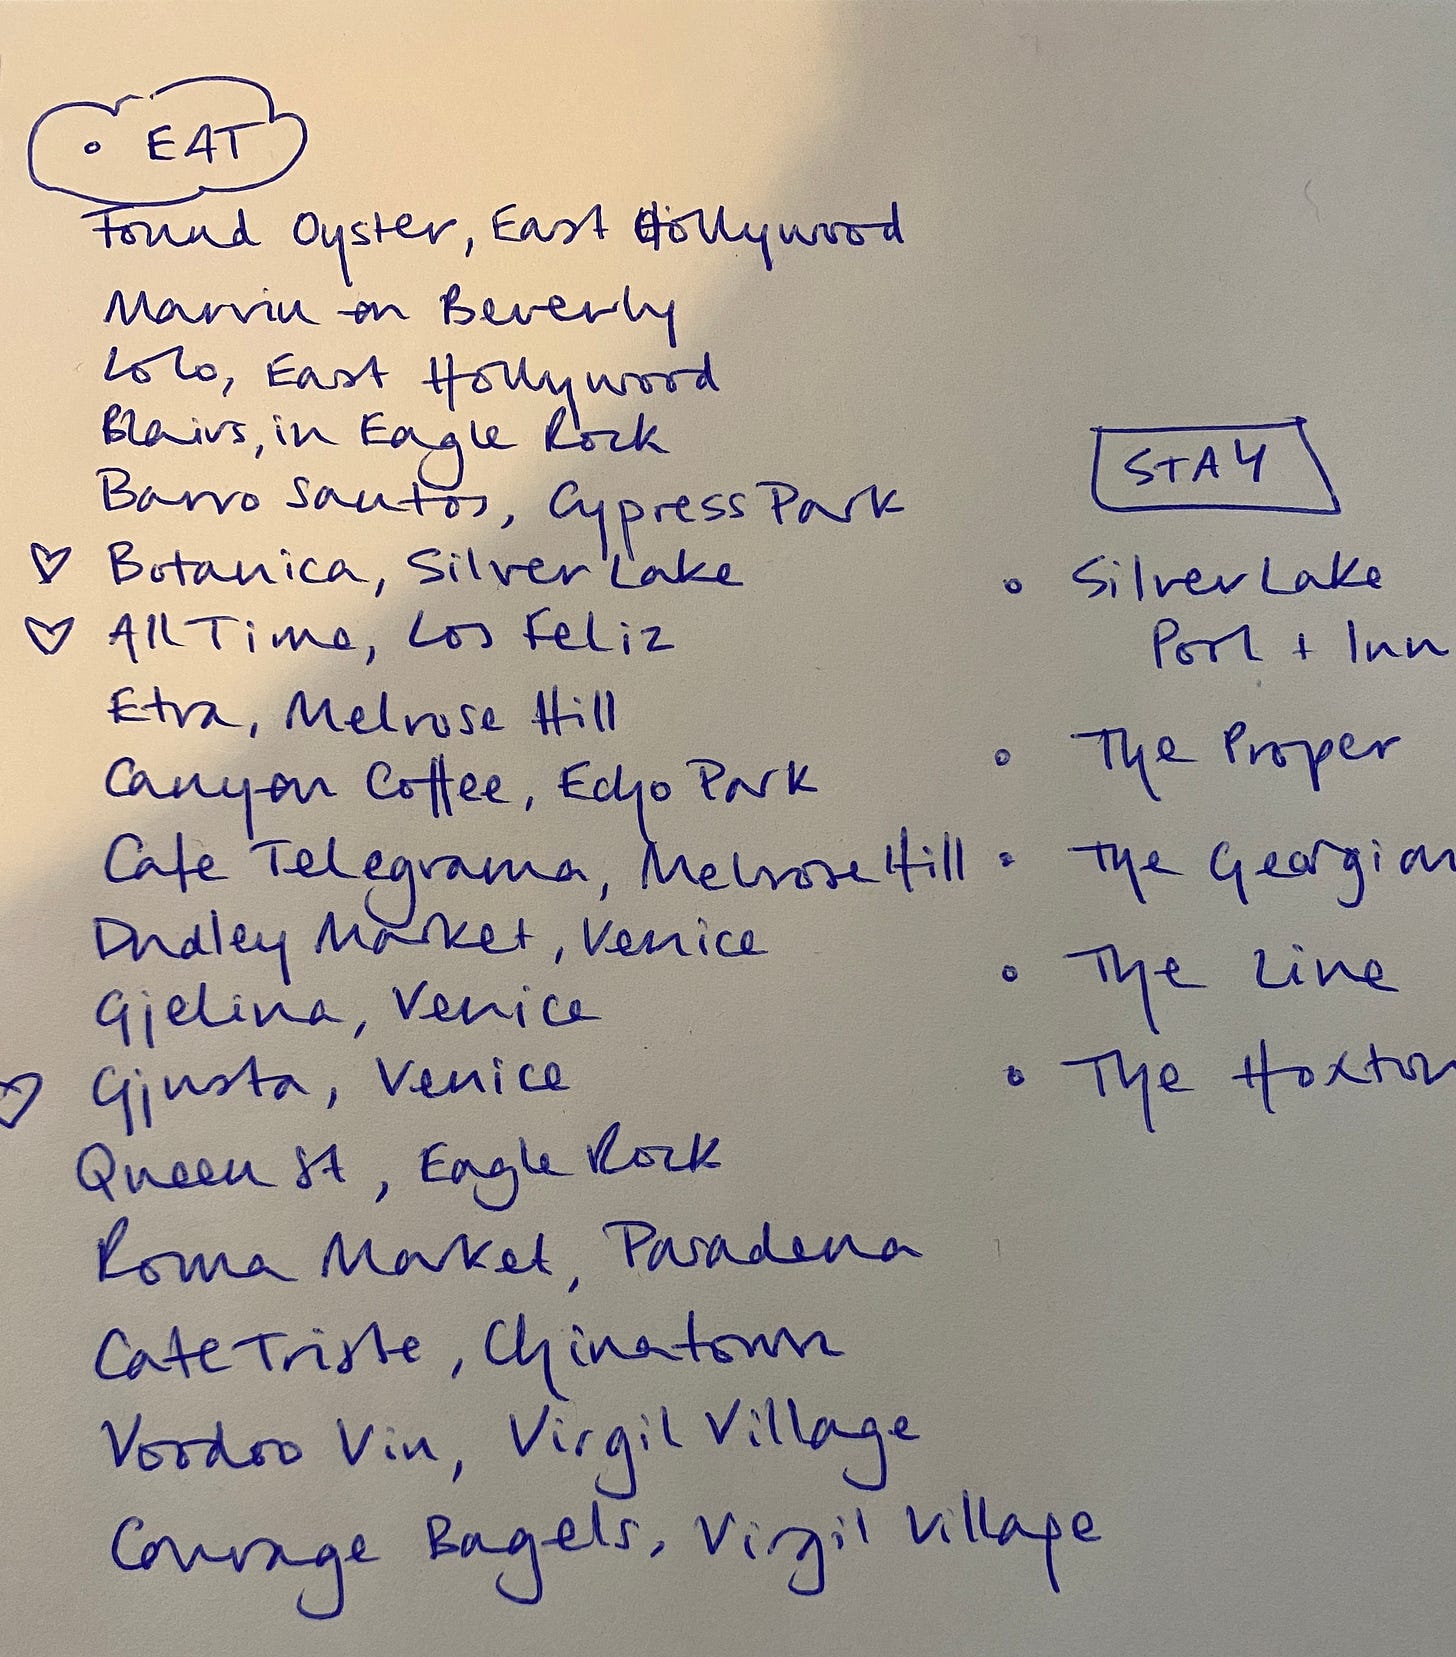 EAT
Found Oyster, East Hollywood
Marvin on Beverly
Lolo, East Hollywood
Blairs, in Eagle Rock
Barro Santos, Cypress Park
♡ Botanica, Silver Lake
♡ All Time, Los Feliz
Etra, Melrose Hill
Canyon Coffee, Echo Park
Cafe Telegrama, Melrose Hill
Dudley Market, Venice
Gjelina, Venice
♡ Gjusta, Venice
Queen St, Eagle Rock
Roma Market, Pasadena
Cafe Triste, Chinatown
Voodoo Vin, Virgil Village
Courage Bagels, Virgil Village
STAY
• Silver Lake
Pool + Inn
• The Proper
• The Georgian
• The Line
• The Hoxton